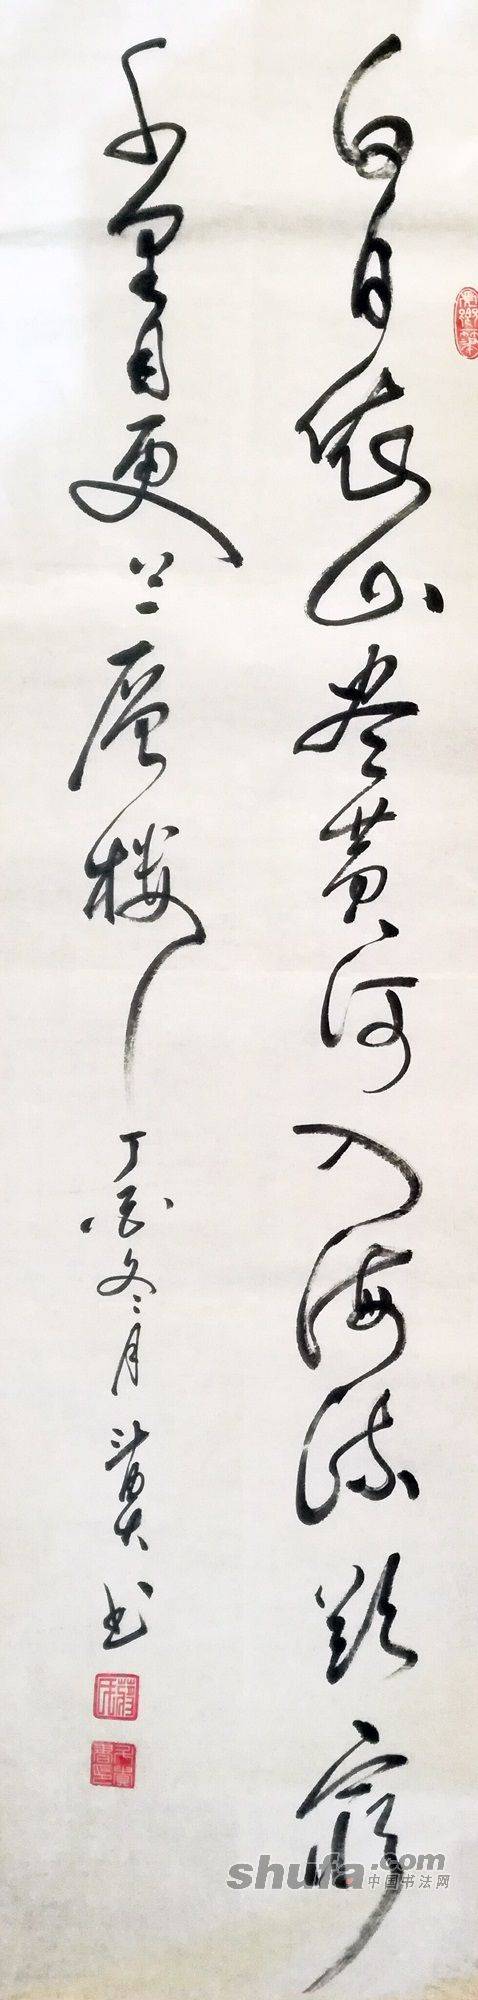 白日依山尽黄河入海流欲穷
千里目更上一层楼
丁酉冬月
书
shufa.com
中国书法网